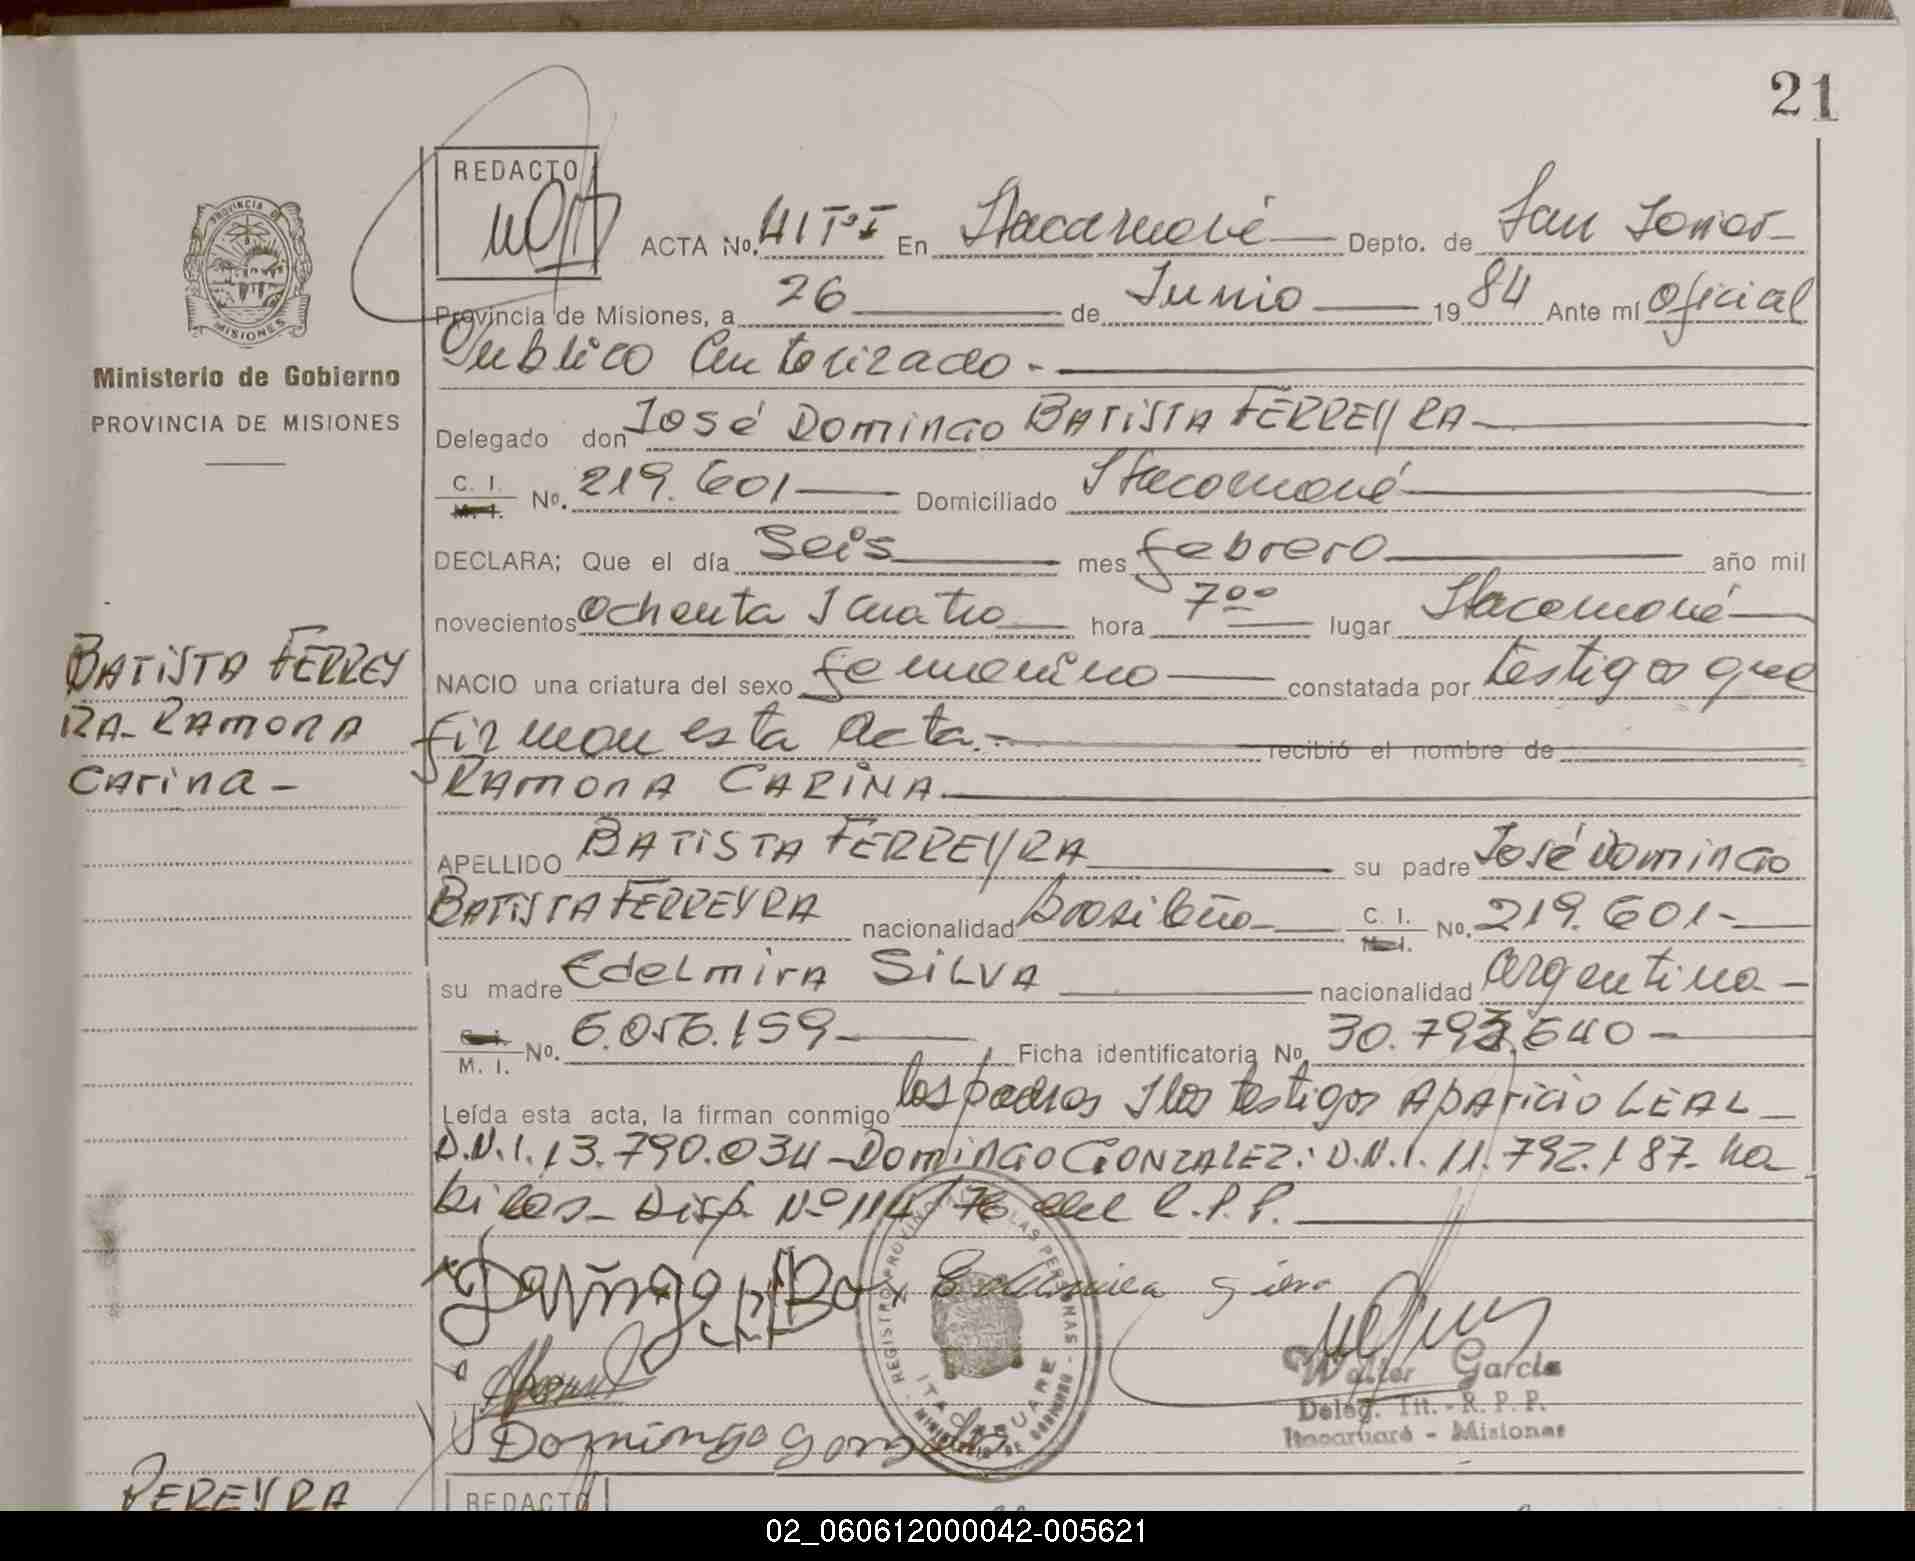 21
REDACTO
ACTA No. 41 Tº I En Itacaruaré Depto. de San Javier
Provincia de Misiones, a 26 de Junio 1984 Ante mí Oficial
Publico Autorizado.-
PROVINCIA DE MISIONES
Ministerio de Gobierno
PROVINCIA DE MISIONES
Delegado don José Domingo BATISTA FERREYRA
C. I. M. I. No. 219.601 Domiciliado Itacaruaré
DECLARA; Que el día Seis mes febrero año mil
novecientos ochenta y cuatro hora 7°° lugar Itacaruaré
NACIO una criatura del sexo femenino constatada por testigos que
firman esta Acta.- recibió el nombre de
RAMONA CARINA.
BATISTA FERREY
RA- RAMONA
CARINA-
APELLIDO BATISTA FERREYRA su padre José Domingo
BATISTA FERREYRA nacionalidad brasileña C. I. M. I. No. 219.601-
su madre EDELMIRA SILVA nacionalidad argentina-
C. I. M. I. No. 6.056.159 Ficha identificatoria No. 30.793.640-
Leída esta acta, la firman conmigo los padres y los testigos APARICIO LEAL
D.N.I. 13.790.034-DOMINGO GONZALEZ: D.N.I. 11.792.187- ha
biles- Disp. Nº 114/76 del R.P.P.
Edelmira Silva
REGISTRO PROVINCIAL DE LAS PERSONAS
ITACARUARE
MINISTERIO DE GOBIERNO
Walter García
Deleg. Tit. - R. P. P.
Itacaruaré - Misiones
Domingo Gonzales
PEREYRA
REDACTO
02_060612000042-005621